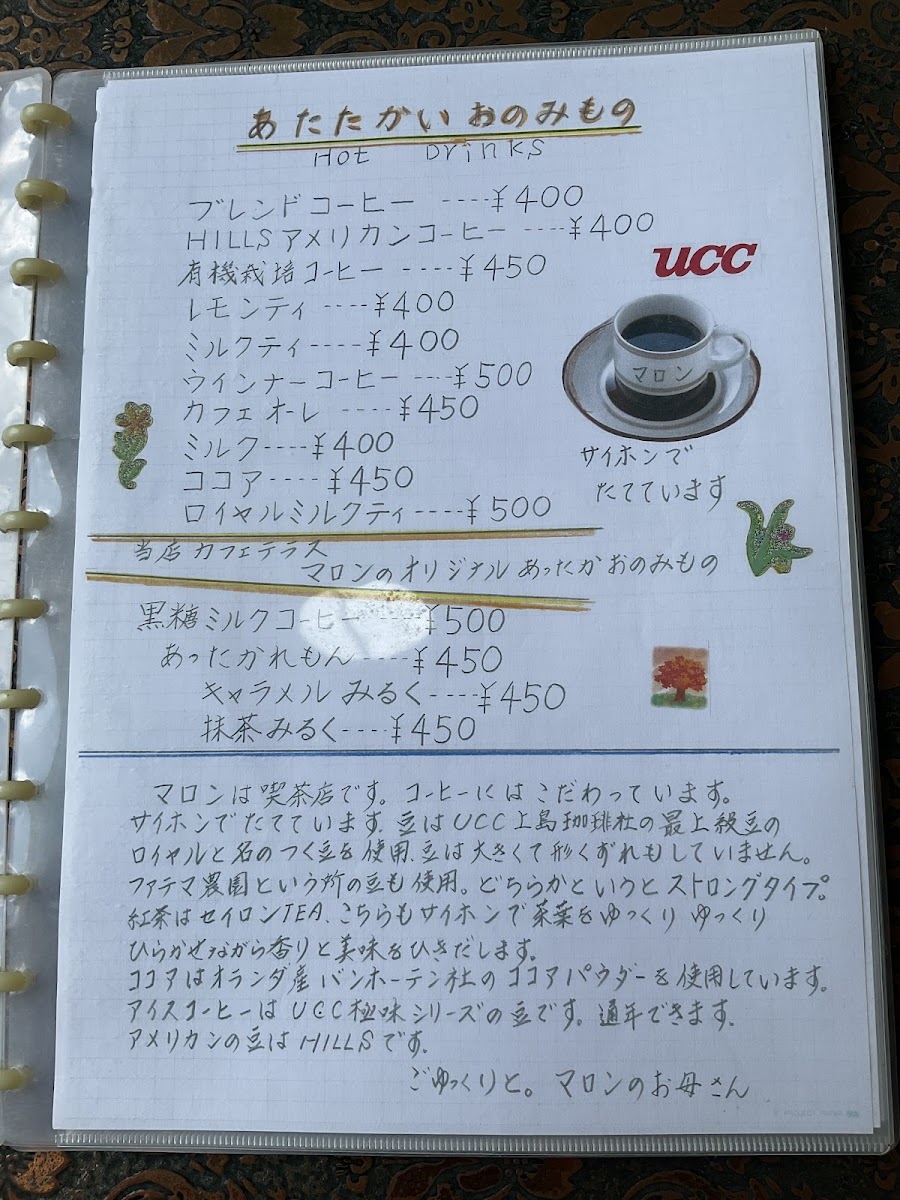 あたたかいおのみもの
Hot Drinks
ブレンドコーヒー ----¥400
HILLSアメリカンコーヒー ----¥400
有機栽培コーヒー ----¥450
ucc
レモンティ ----¥400
ミルクティ ----¥400
ウインナーコーヒー ----¥500
マロン
カフェオーレ ----¥450
ミルク----¥400
サイホンで
たてています
ココア----¥450
ロイヤルミルクティ----¥500
当店カフェテラス
マロンのオリジナルあったかおのみもの
黒糖ミルクコーヒー----¥500
あったかれもん----¥450
キャラメルみるく----¥450
抹茶みるく----¥450
マロンは喫茶店です。コーヒーにはこだわっています。
サイホンでたてています、豆はUCC上島珈琲社の最上級豆の
ロイヤルと名のつく豆を使用、豆は大きくて形くずれもしていません。
ファテマ農園という所の豆も使用。どちらかというとストロングタイプ。
紅茶はセイロンTEA、こちらもサイホンで茶葉をゆっくりゆっくり
ひらかせながら香りと美味をひきだします。
ココアはオランダ産バンホーテン社のココアパウダーを使用しています。
アイスコーヒーはUCC極味シリーズの豆です。通年できます。
アメリカンの豆はHILLSです。
ごゆっくりと。マロンのお母さん